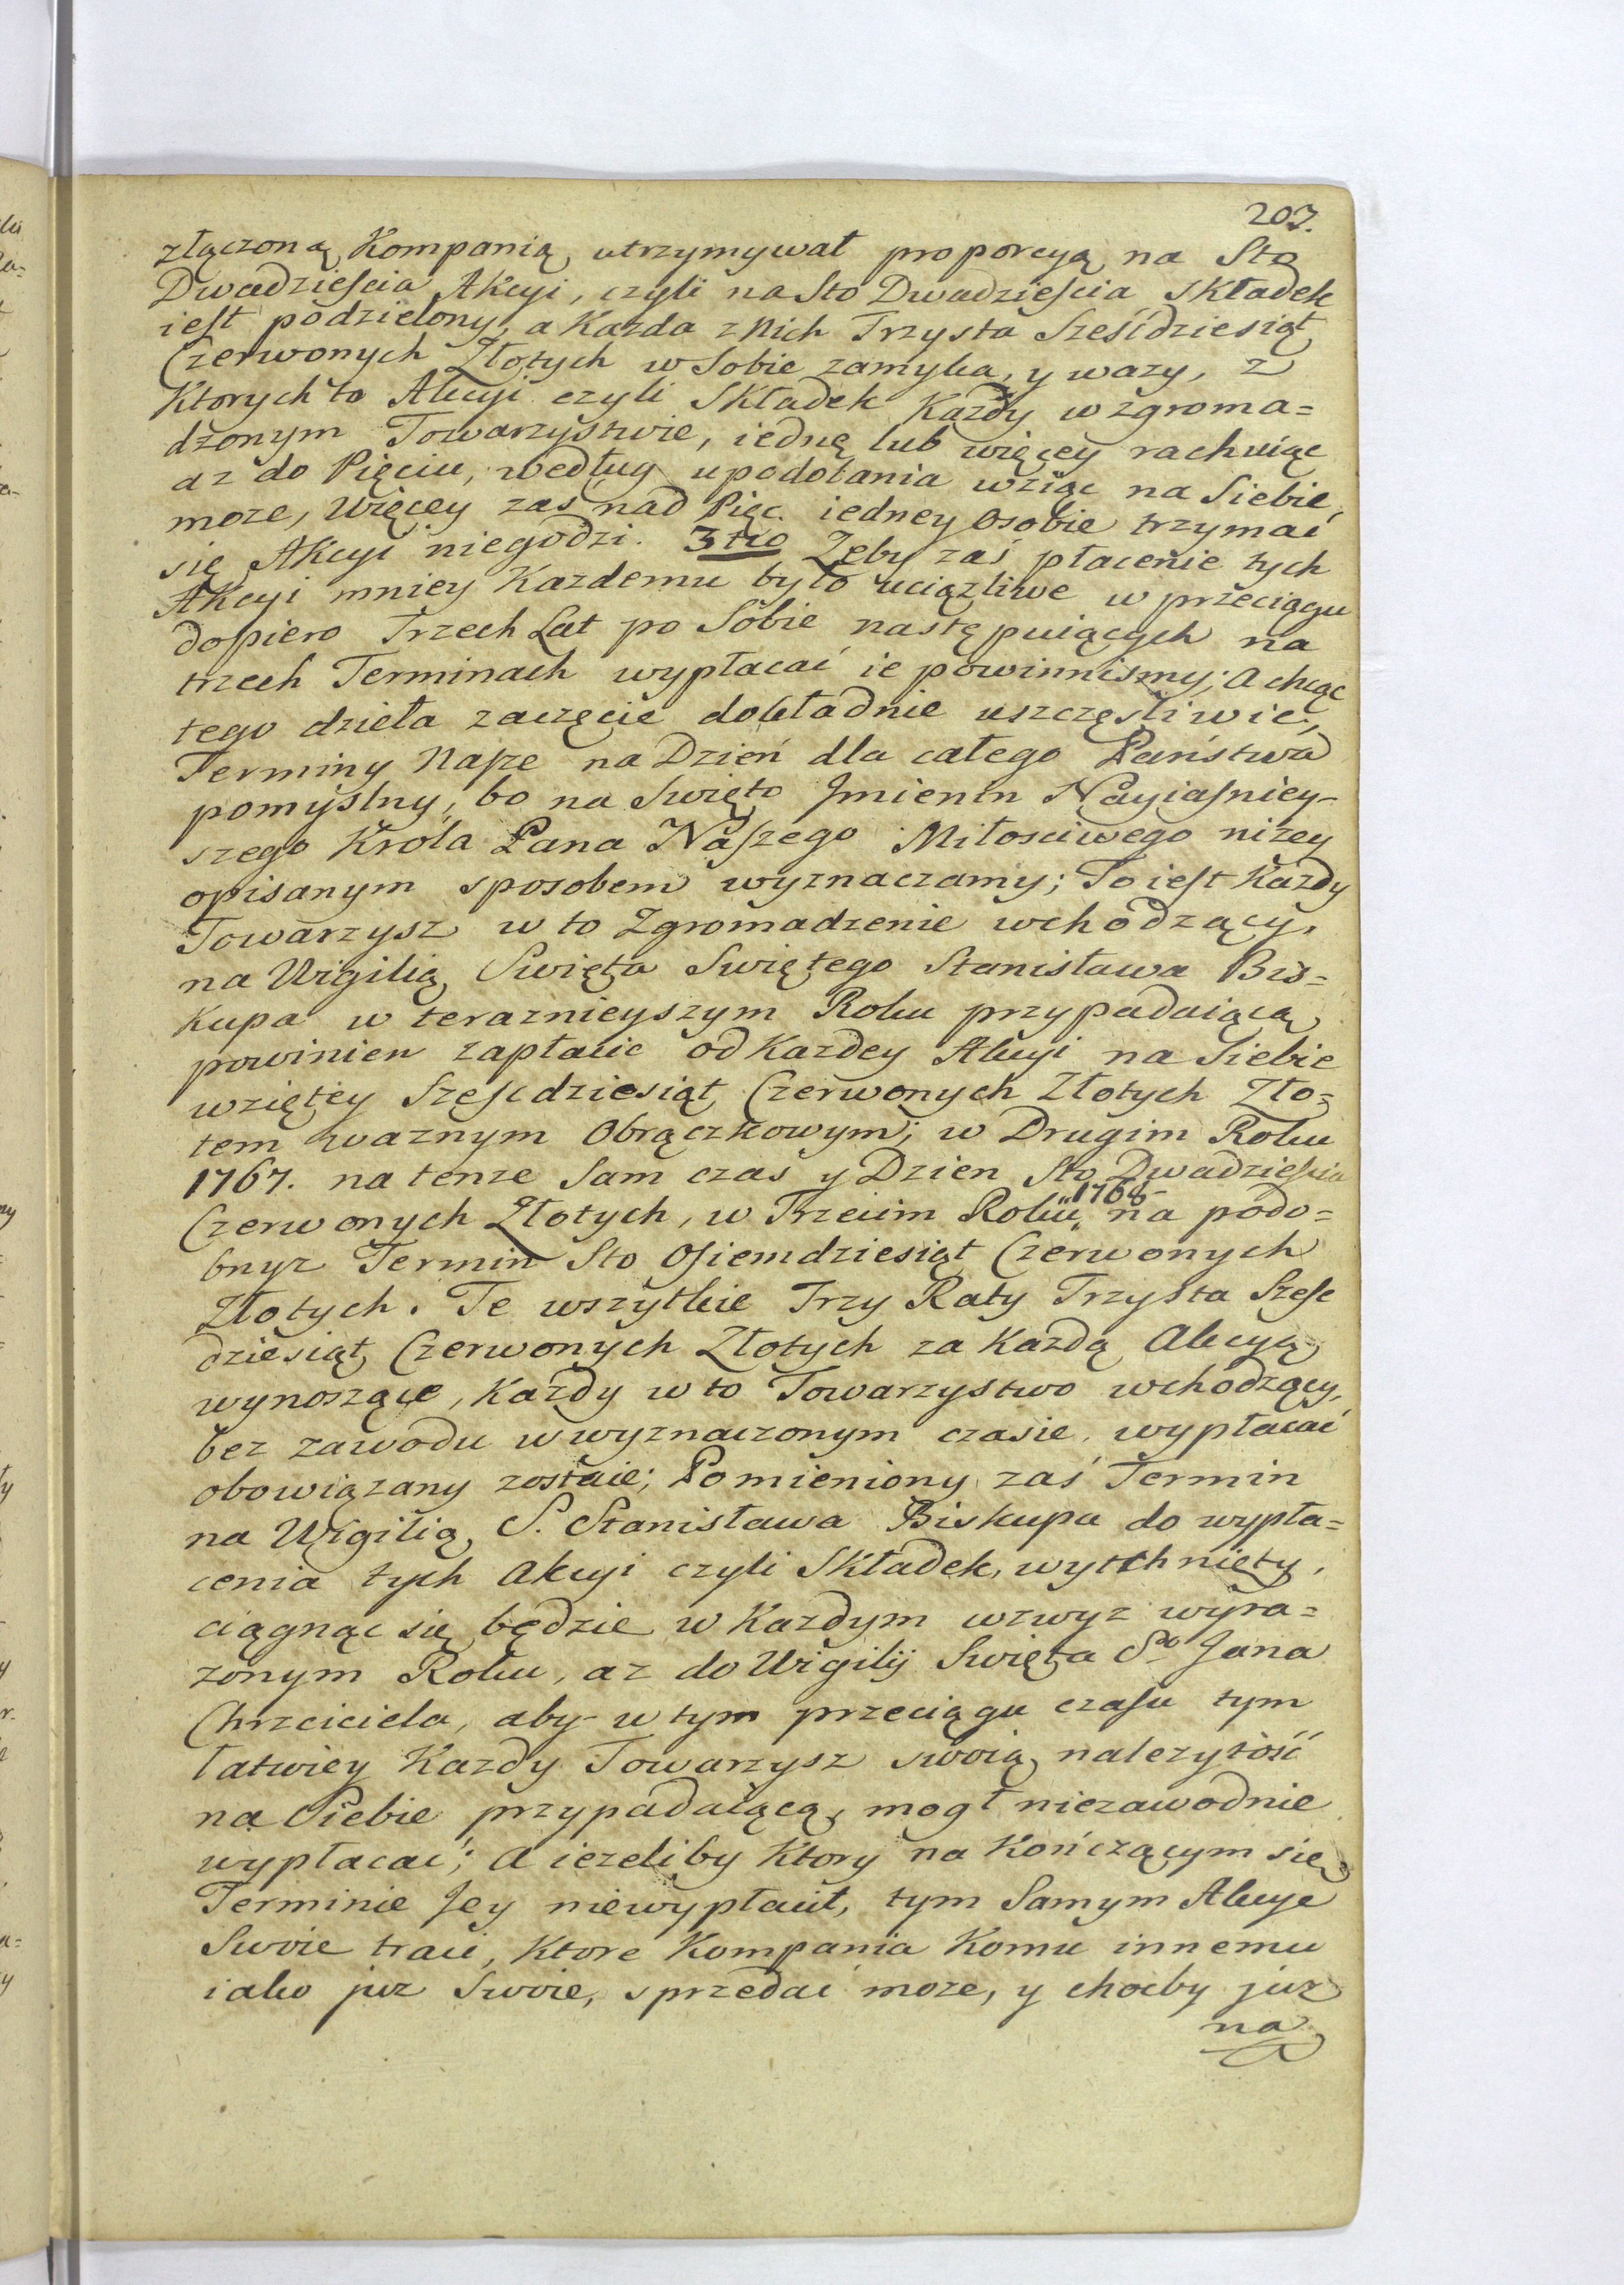 203.
złączoną Kompanią utrzymywał proporcyą na Sto
Dwadzieścia Akcyi, czyli na Sto Dwadzieścia Składek
iest podzielony, a Kazda z Nich Trzysta Sześćdziesiąt
Czerwonych Złotych w Sobie zamyka, y wazy, z
Ktorych to Akcyi czyli Składek Kazdy w zgroma=
dzonym Towarzystwie, iednę lub więcey rachuiąc
az do Pięciu, według upodobania wziąc na Siebie
moze, Więcey zas nad Pięc iedney Osobie trzymać
się Akcyi niegodzi. 3tio Zeby zaś płacenie tych
Akcyi mniey Kazdemu było uciązliwe w przeciągu
dopiero Trzech Lat po Sobie następuiących na
trzech Terminach wypłacać ie powinnismy; A chcąc
tego dzieła zaczęcie dokładnie uszczęsliwic,
Terminy Nasze na Dzień dla całego Państwa
pomyslny, bo na Swięto Jmienin Nayiasniey-
szego Krola Pana Naszego Miłosciwego nizey
opisanym sposobem wyznaczamy; To iest Kazdy
Towarzysz w to Zgromadzenie wchodzący,
na Wigilią Swięta Swiętego Stanisława Bis=
Kupa w teraznieyszym Roku przypadaiącą
powinien zapłacic od Kazdey Akcyi na Siebie
wziętey Szescdziesiąt Czerwonych Złotych Zło=
tem waznym Obrączkowym; w Drugim Roku
1767. na tenze Sam czas y Dzien Sto Dwadziescia
Czerwonych Złotych, w Trzecim Roku 1768 na podo=
bnyz Termin Sto Osiemdziesiąt Czerwonych
Złotych. Te wszytkie Trzy Raty Trzysta Szesc
dziesiąt Czerwonych Złotych za Kazdą Akcyą
wynoszące, Kazdy w to Towarzystwo wchodzący,
bez zawodu w wyznaczonym czasie wypłacać
obowiązany zostaie; Pomieniony zaś Termin
na Wigilią S. Stanisława Biskupa do wypła=
cenia tych Akcyi czyli Składek, wytchnięty,
ciągnąc się będzie w Kazdym wzwyz wyra=
zonym Roku, az do Wigilij Swięta So Jana
Chrzciciela, aby w tym przeciągu czasu tym
łatwiey Kazdy Towarzysz swoią nalezytość
na Siebie przypadaiącą, mogł niezawodnie
wypłacać; A iezeliby Ktory na Kończącym się
Terminie Jey niewypłacił, tym Samym Akcye
Swoie traci, Ktore Kompania Komu innemu
iako juz Swoie, sprzedać moze, y chocby juz
na